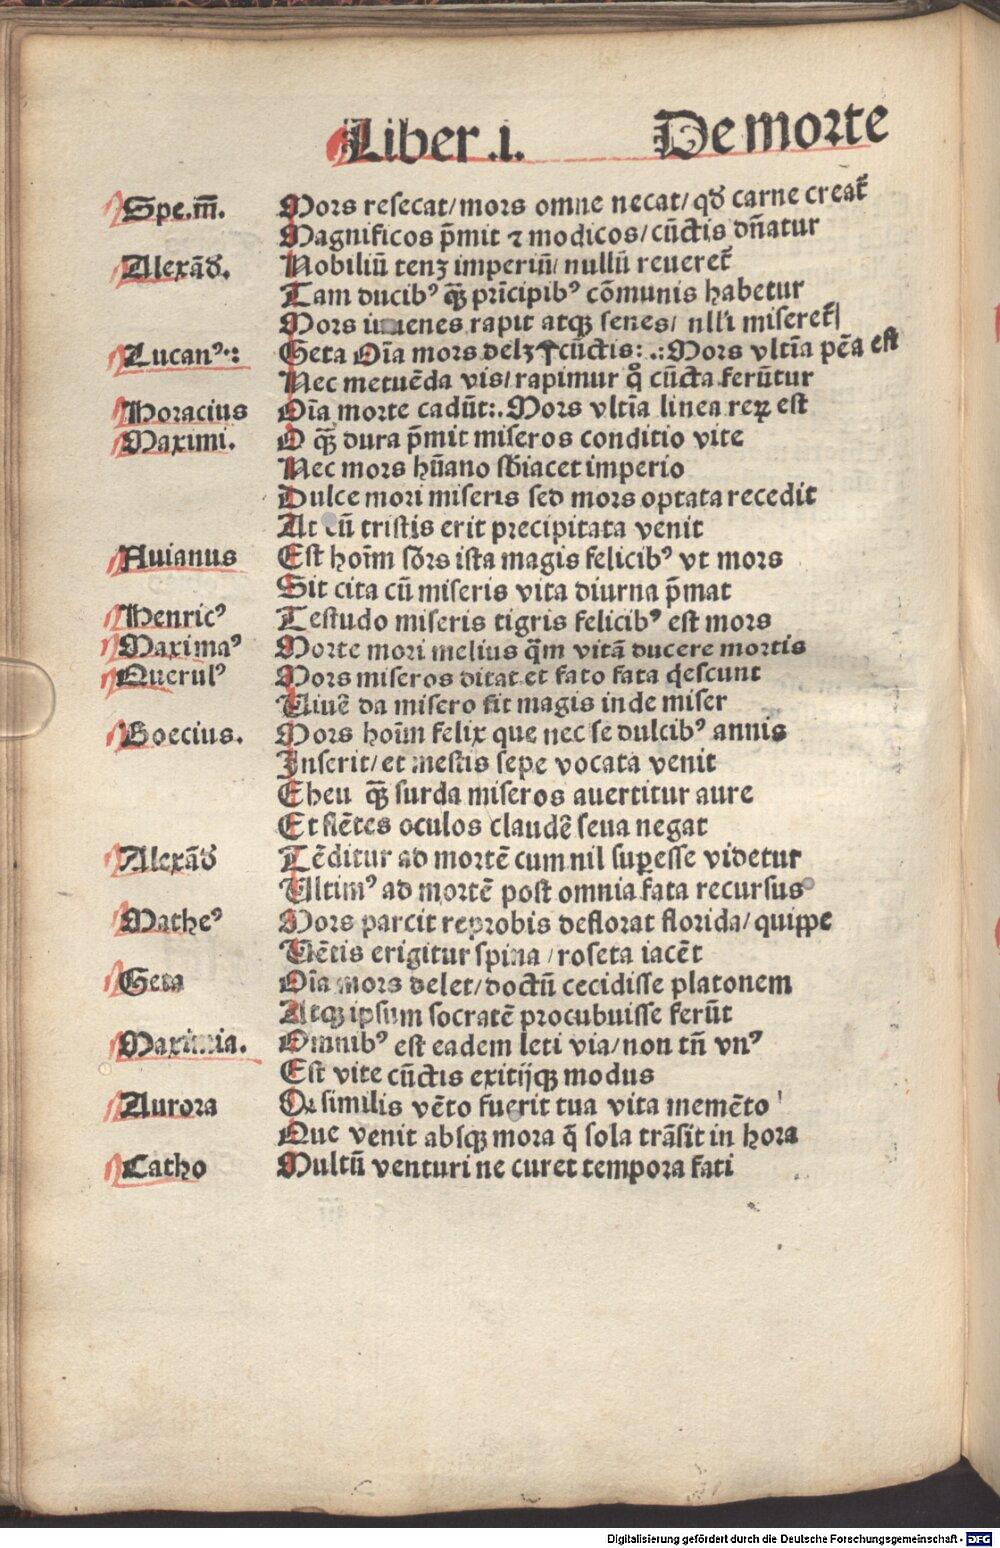 Liber .1. De morte
Spe.m̅. Mors resecat/mors omne necat/qd̕ carne creat᷑
Magnificos p̄mit ⁊ modicos/cūctis dn̄atur
Alexād̕. Nobiliū tenꝫ imperiū/nullū reueret᷑
Tam ducibꝰ qͣꝫ prīcipibꝰ cōmunis habetur
Mors iuuenes rapit atqꝫ senes/ nlli miseret᷑
Lucanꝰ Geta Oīa mors delꝫ cūctis: .:Mors vltīa pēa est
Nec metuēda vis/rapimur qͦ cūcta ferūtur
Horacius Oīa morte cadūt:.Mors vltīa linea reꝝ est
Maximi. O qͣꝫ dura p̄mit miseros conditio vite
Nec mors hūano sb̕iacet imperio
Dulce mori miseris sed mors optata recedit
At cū tristis erit precipitata venit
Auianus Est hoīm sōrs ista magis felicibꝰ vt mors
Sit cita cū miseris vita diurna p̄mat
Henricꝰ Testudo miseris tigris felicibꝰ est mors
Maximaꝰ Morte mori melius qͣm vitā ducere mortis
Querulꝰ Mors miseros ditat et fato fata q̇escunt
Uiuē da misero fit magis inde miser
Boecius. Mors hoīm felix que nec se dulcibꝰ annis
Inserit/et mestis sepe vocata venit
Eheu qͣꝫ surda miseros auertitur aure
Et flētes oculos claudē seua negat
Alexād̕ Tēditur ad mortē cum nil suꝑesse videtur
Ultimꝰ ad mortē post omnia fata recursus
Matheꝰ Mors parcit reprobis deflorat florida/quippe
Uētis erigitur spina/roseta iacēt
Geta Oīa mors delet/doctū cecidisse platonem
Atqꝫ ipsum socratē procubuisse ferūt
Maximia. Omnibꝰ est eadem leti via/non tn̄ vnꝰ
Est vite cūctis exitijqꝫ modus
Aurora Qr similis vēto fuerit tua vita memēto
Que venit absqꝫ mora q̄ sola trāsit in hora
Catho Multū venturi ne curet tempora fati
Digitalisierung gefördert durch die Deutsche Forschungsgemeinschaft - DFG